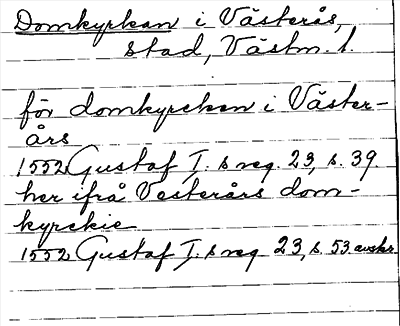 Domkyrkan i Västerås,
stad, Västm. l.
för domkyrcken i Väster-
års
1552 Gustaf I. s reg. 23, s. 39
her ifrå Vesterårs dom-
kyrckie
1552 Gustaf I. s reg 23, s. 53 avskr.